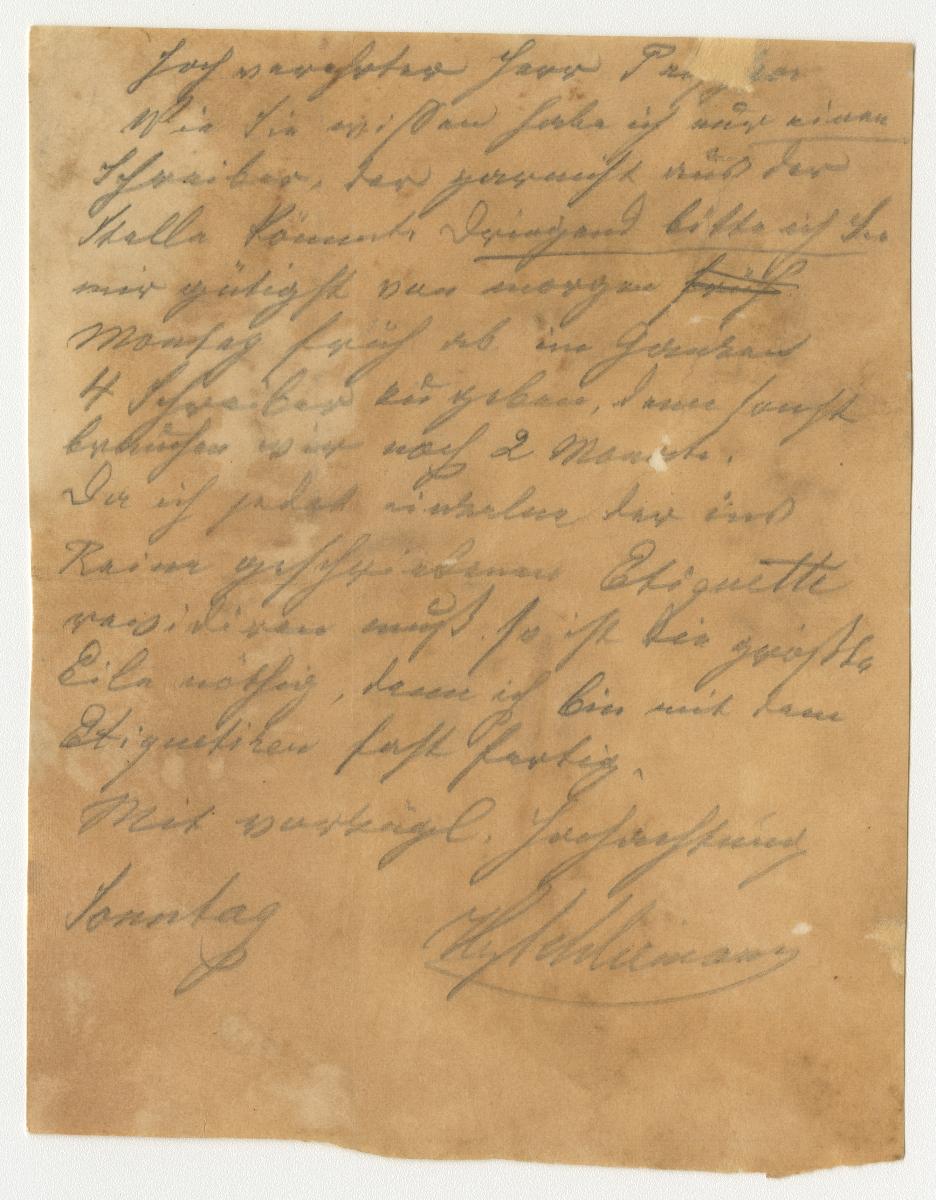 Hoch verehrter Herr
Wie Sie wissen habe ich nur einen
Schreiber, der garnicht aus der
Stelle kömmt. Dringend bitte ich Sie
mir gütigst von morgen früh
Montag früh ab im Ganzen
4 Schreiber zu geben, denn sonst
brauchen wir noch 2 Monate.
Da ich jedes einzelne der ins
Reine geschriebenen Etiquette
revidiren muß, so ist die größte
Eile nöthig, denn ich bin mit dem
Etiquetiren fast fertig.
Mit vorzügl. Hochachtung
Sonntag
HySchliemann